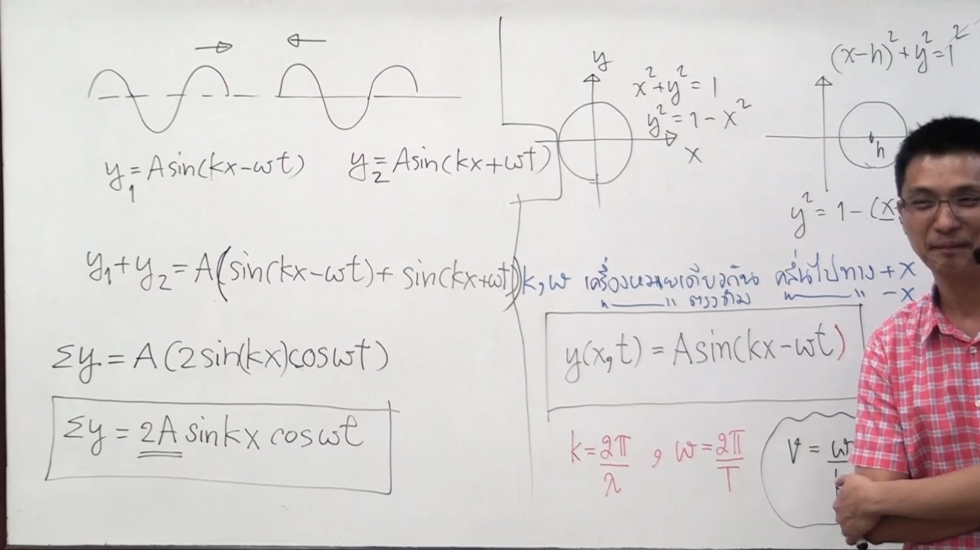 y₁ = Asin(kx-ωt)
y₂ = Asin(kx+ωt)
y₁+y₂ = A(sin(kx-ωt)+ sin(kx+ωt))
Σy = A(2sin(kx)cosωt)
Σy = 2A sinkx cosωt
y
x²+y²=1
y² = 1-x²
x
(x-h)²+y²=1²
h
y² = 1-(x
k,ω เครื่องหมายเดียวกัน คลื่นไปทาง +x
" ——— " ตรงข้าม " ——— " -x
y(x,t) = Asin(kx-ωt)
k = 2π/λ , ω = 2π/T
V = ω/k